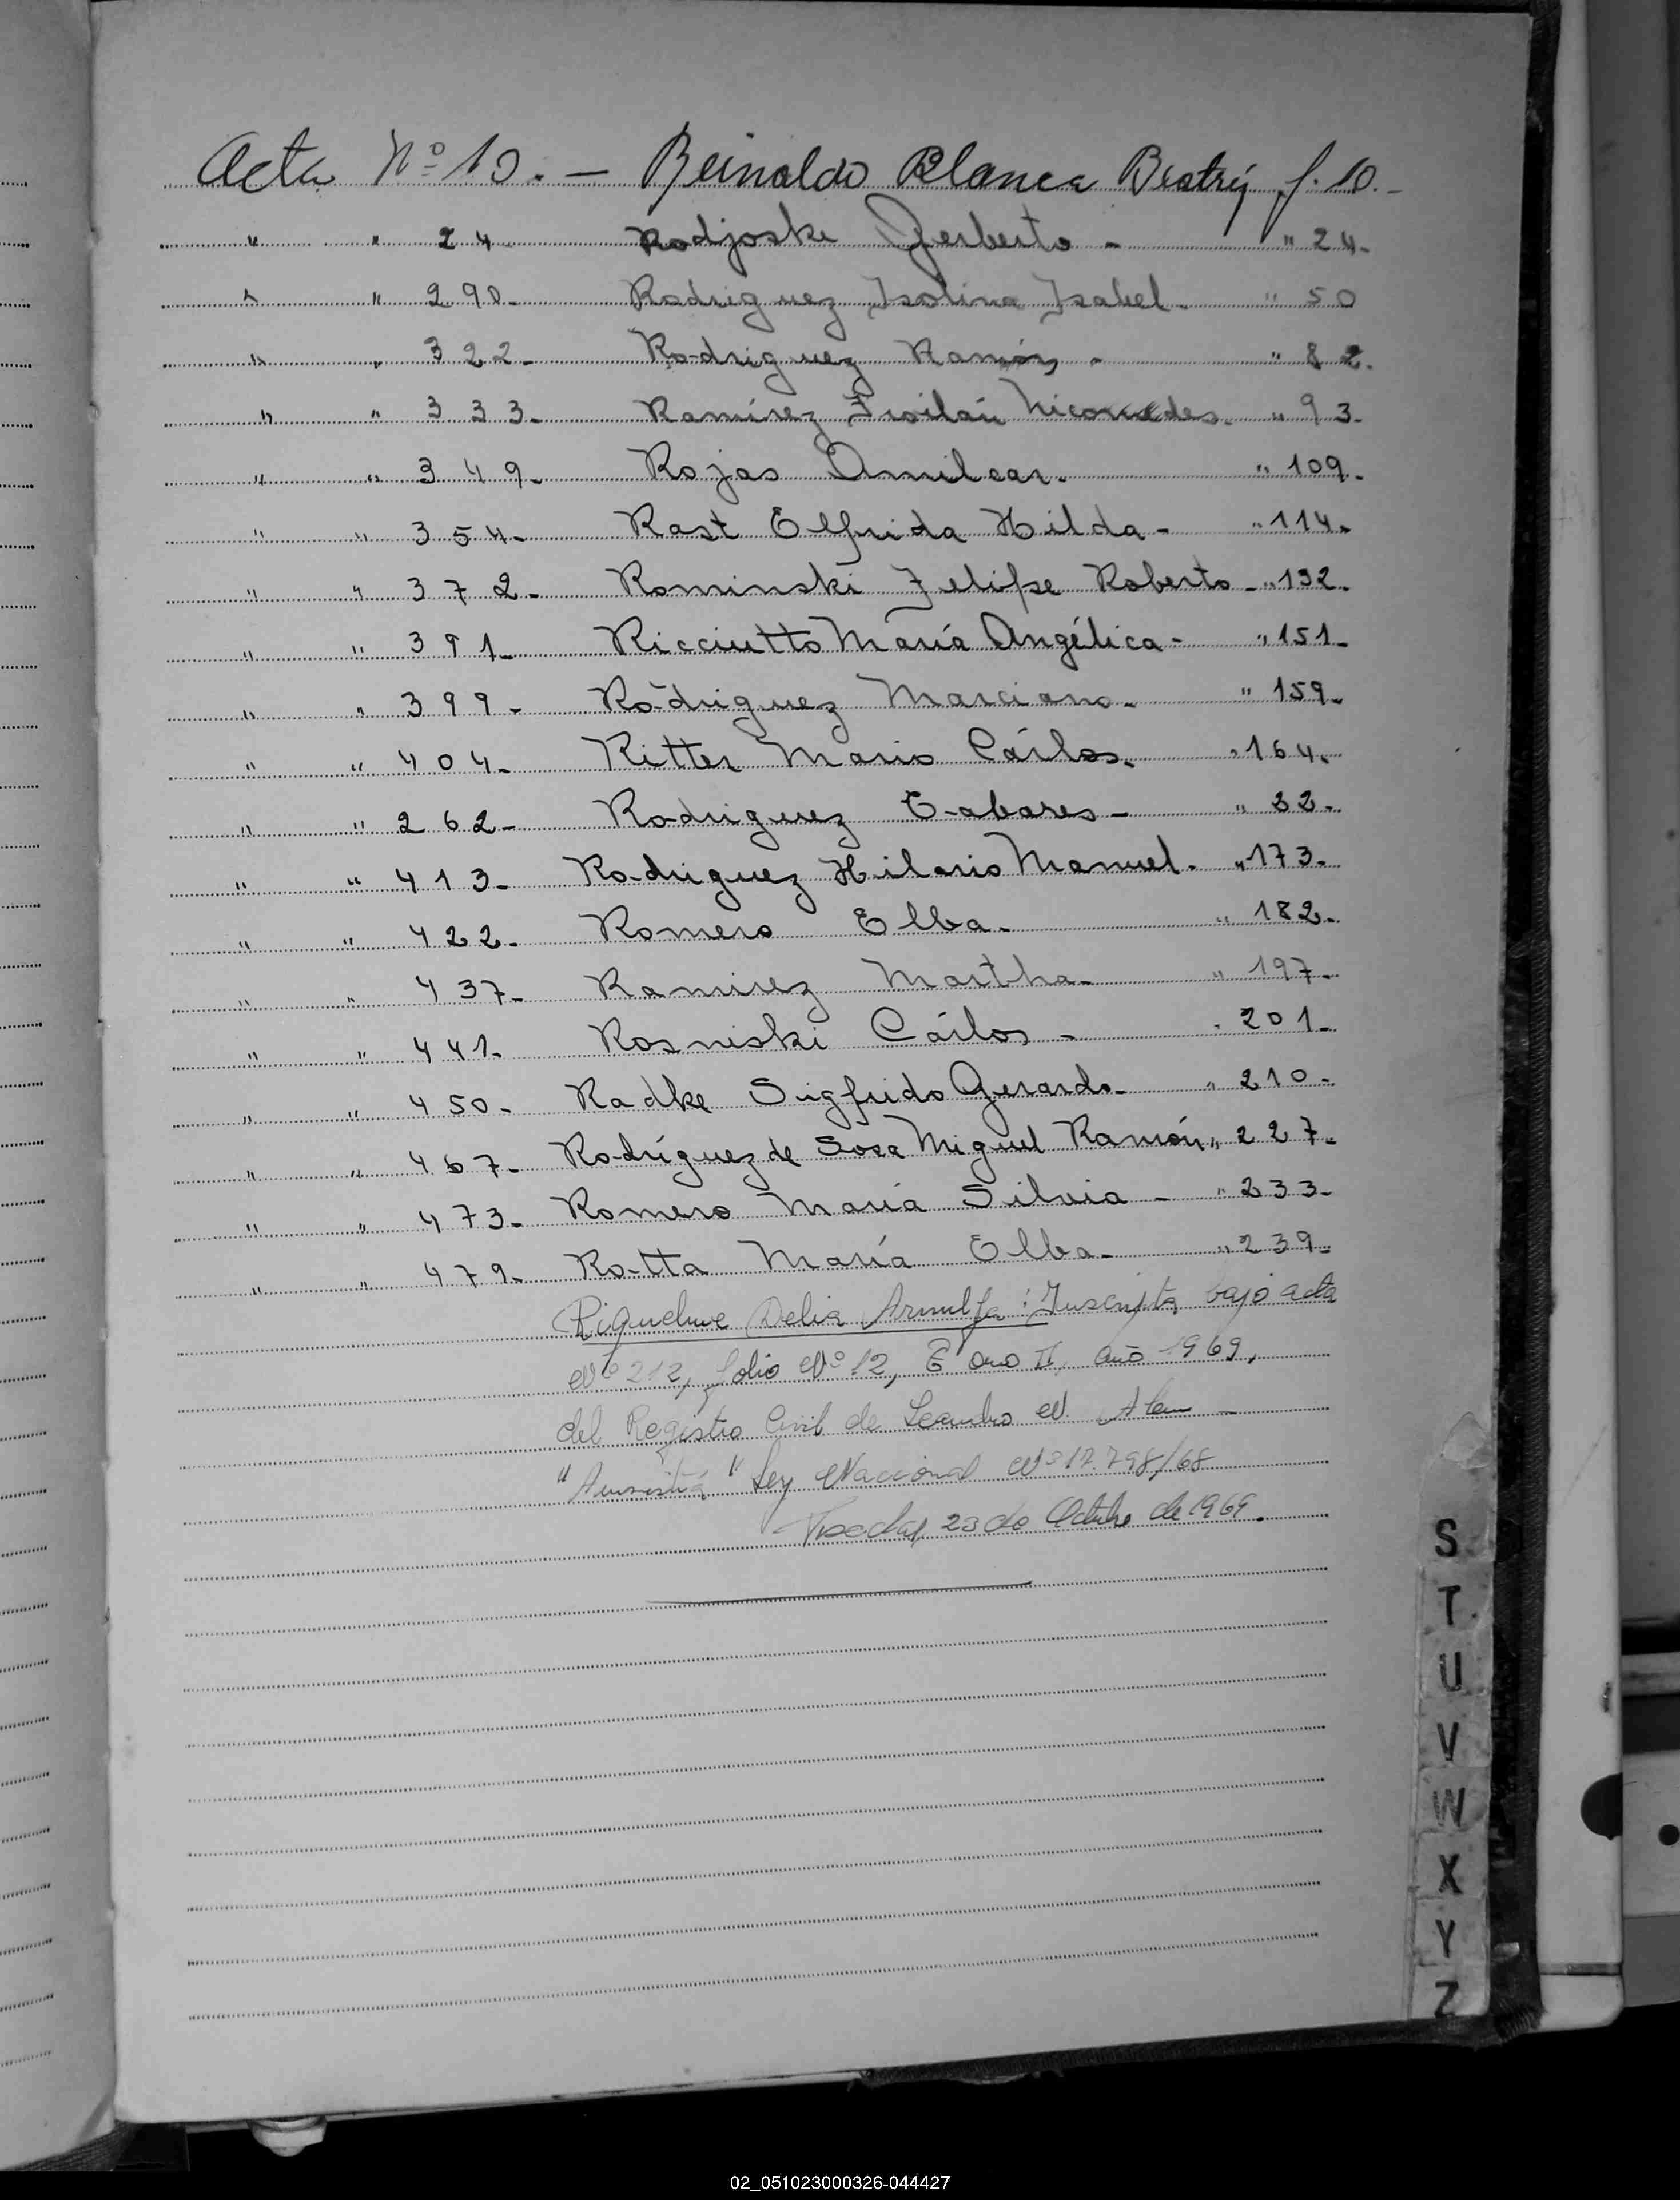 Acta Nº 10. — Reinaldo Blanca Beatriz f. 10.-
" " 24 Rodjoski Gerberto - " 24-
" " 290- Rodriguez Isolina Isabel- " 50
" " 322- Rodriguez Ramón - " 82.
" " 333- Ramírez Froilán Nicomedes- " 93-
" " 349- Rojas Amilcar- " 109-
" " 354- Rast Elfrida Hilda- " 114-
" " 372- Rominski Felipe Roberto - " 132-
" " 391- Ricciutto María Angélica- " 151-
" " 399- Rodriguez Marciano- " 159-
" " 404- Ritter Mario Cárlos- " 164-
" " 262- Rodriguez Tabares- " 22-
" " 413- Rodriguez Hilario Manuel- " 173-
" " 422- Romero Elba- " 182-
" " 437- Ramirez Martha- " 197-
" " 441- Rosniski Cárlos - " 201-
" " 450- Radke Sigfrido Gerardo- " 210-
" " 467- Rodríguez de Sosa Miguel Ramón " 227-
" " 473- Romero María Silvia - " 233-
" " 479- Rotta María Elba- " 239-
Riquelme Delia Arnulfa: Inscripta bajo acta
Nº 212, folio Nº 12, Tomo II, año 1969,
del Registro Civil de Leandro N. Alem —
"Amnistía" Ley Nacional Nº 17.798/68
23 de Octubre de 1969.
S
T
U
V
W
X
Y
Z
02_051023000326-044427